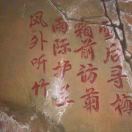 雪后寻梅
霜前访菊
雨际护兰
风外听竹